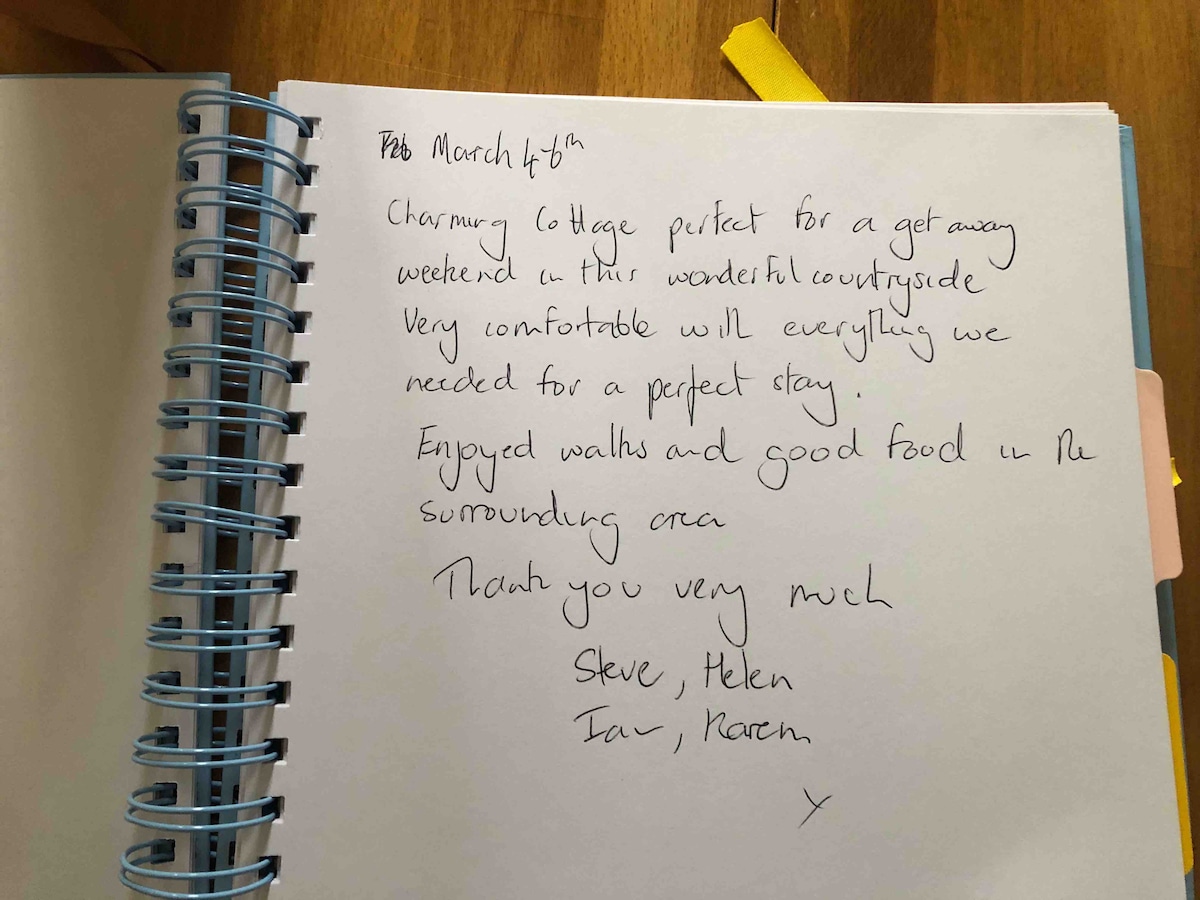 Feb March 4-6th
Charming Cottage perfect for a get away
weekend in this wonderful countryside
Very comfortable with everything we
needed for a perfect stay.
Enjoyed walks and good food in the
surrounding area
Thank you very much
Steve, Helen
Ian, Karen
x